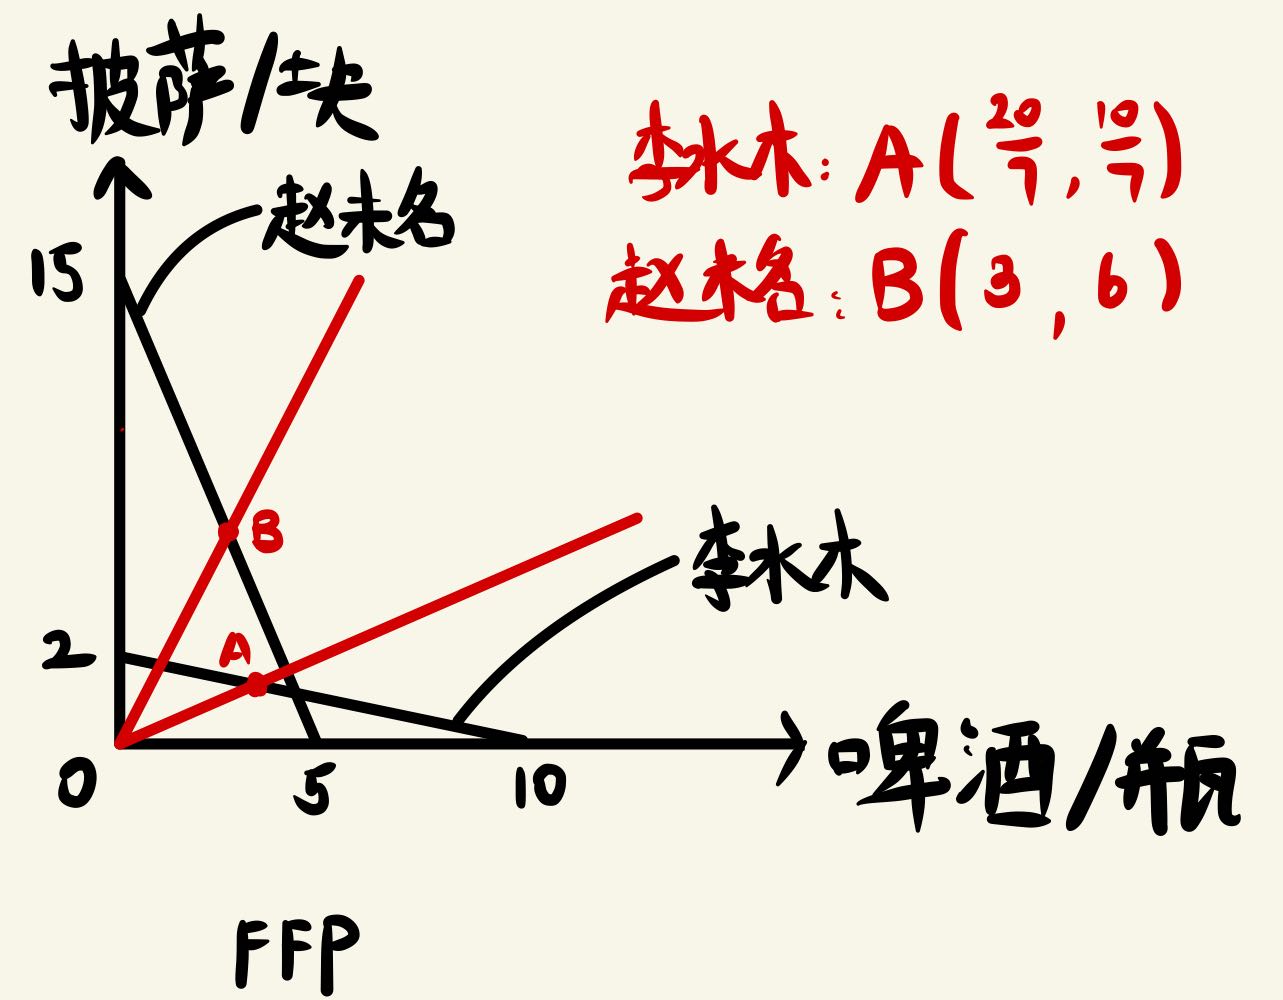 披萨/块
李水木: A(20/7, 10/7)
赵未名
15
赵未名: B(3, 6)
B
李水木
2
A
0
5
10
啤酒/瓶
FFP